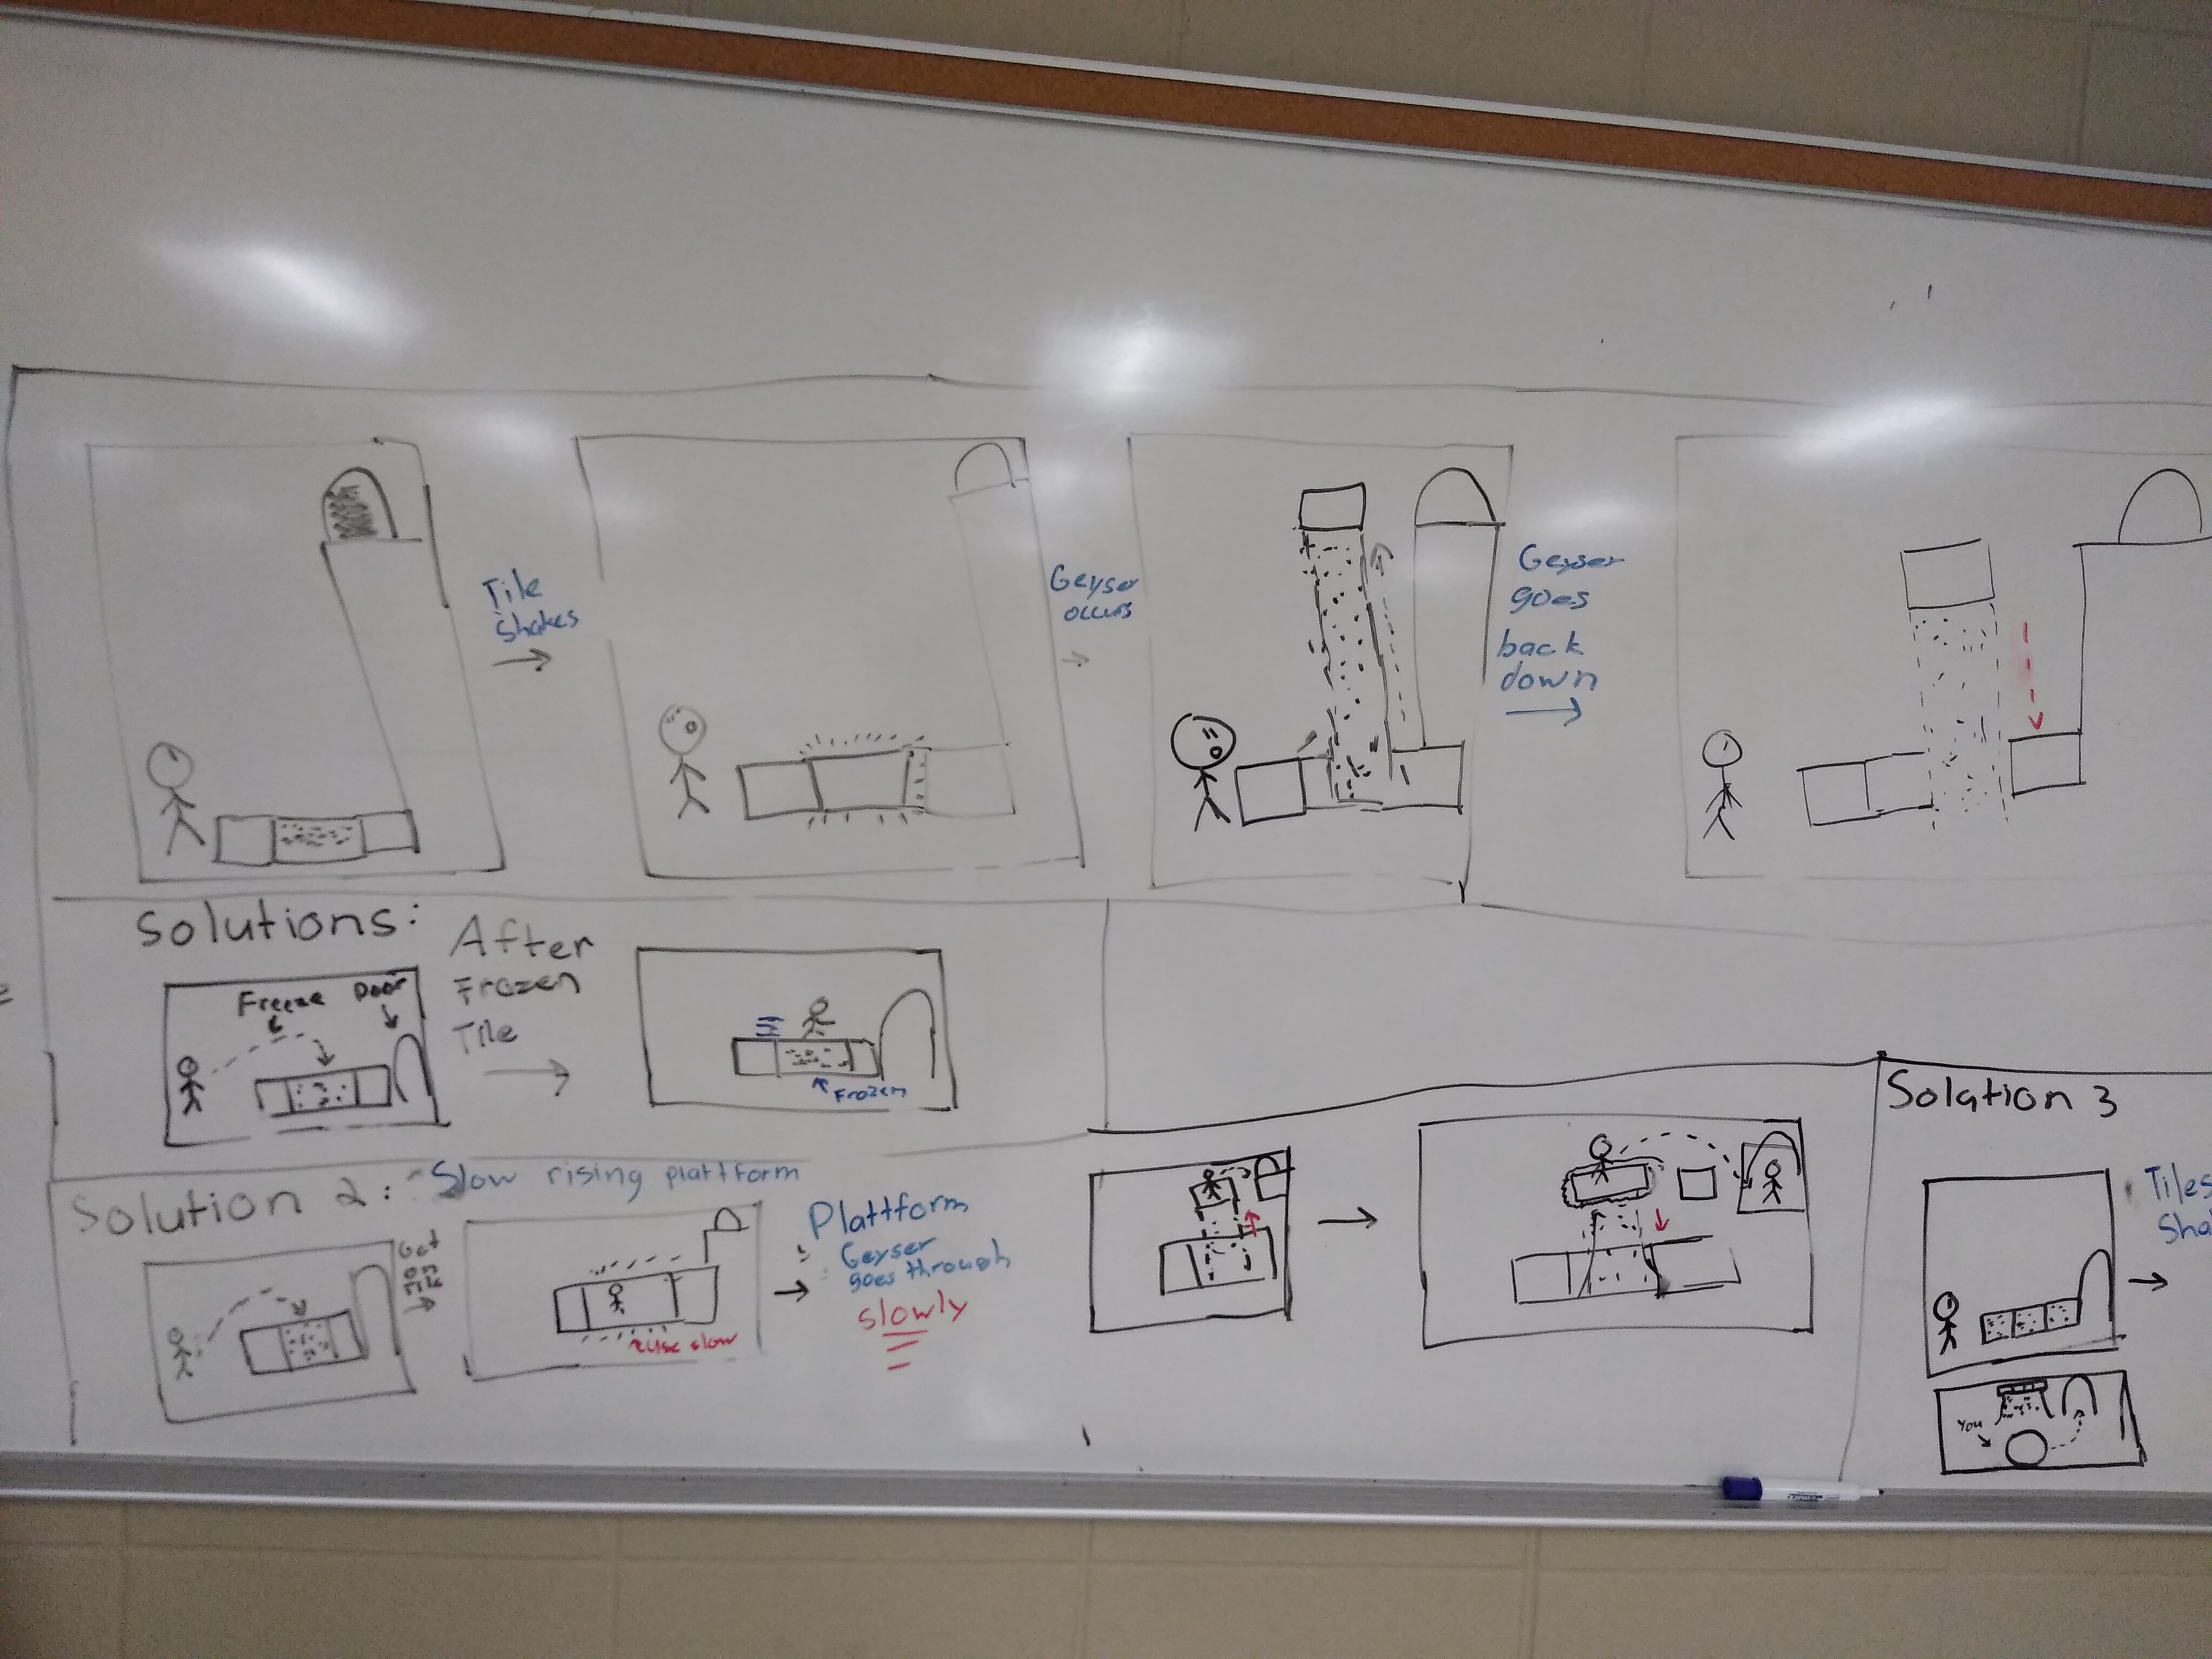 Tile
Shakes
Geyser
occurs
Geyser
goes
back
down
Solutions:
Freeze
Door
After
Frozen
Tile
Frozen
Solution 2: Slow rising plattform
Get
rise slow
Plattform
Geyser
goes through
slowly
Solution 3
Tiles
Sha
You